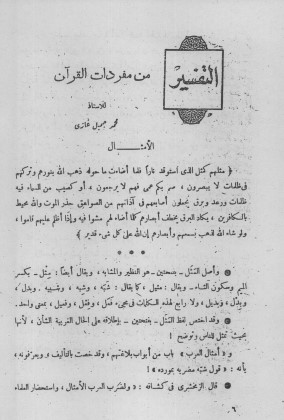 التفسير
من مفردات القرآن
للأستاذ
محمد جميل غازى
الأمثـــال
﴿ مثلهم كمثل الذى استوقد ناراً فلما أضاءت ما حوله ذهب الله بنورهم وتركهم
فى ظلمات لا يبصرون ، صم بكم عمى فهم لا يرجعون ، أو كصيب من السماء فيه
ظلمات ورعد وبرق يجعلون أصابعهم فى آذانهم من الصواعق حذر الموت والله محيط
بالكافرين ، يكاد البرق يخطف أبصارهم كلما أضاء لهم مشوا فيه وإذا أظلم عليهم قاموا ،
ولو شاء الله لذهب بسمعهم وأبصارهم إن الله على كل شىء قدير ﴾
● وأصل المَثَل ـ بفتحتين ـ هو النظير والمشابه ، ويقال أيضاً : مِثْل ـ بكسر
الميم وسكون الثاء ـ ويقال : مثيل ، كما يقال : شَبَه ، وشِبه ، وشبيه . وبَدَل ،
وبِدْل ، وبديل ، ولا رابع لهذه الكلمات فى مجىء فَعَل ، وفِعْل ، وفعيل ، بمعنى واحد .
● وقد اختص لفظ المَثَل ـ بفتحتين ـ بإطلاقه على الحال الغريبة الشأن ، لأنها
بحيث تمثل للناس وتوضح !
و « أمثال العرب » باب من أبواب بلاغتهم ، وقد خصت بالتأليف ، ويعرفونه ،
بأنه : « قول شبه مضربه بمورده » !
● قال الزمخشرى فى كشافه : « ولضرب العرب الأمثال ، واستحضار العلماء
٦